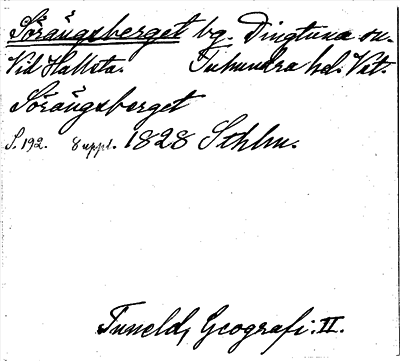 Sörängsberget bg. Dingtuna sn.
Vid Hallsta. Tuhundra hd. Vstm.
Sörängsberget
S. 192. 8 uppl. 1828 Sthlm.
Tuneld, Geografi. II.